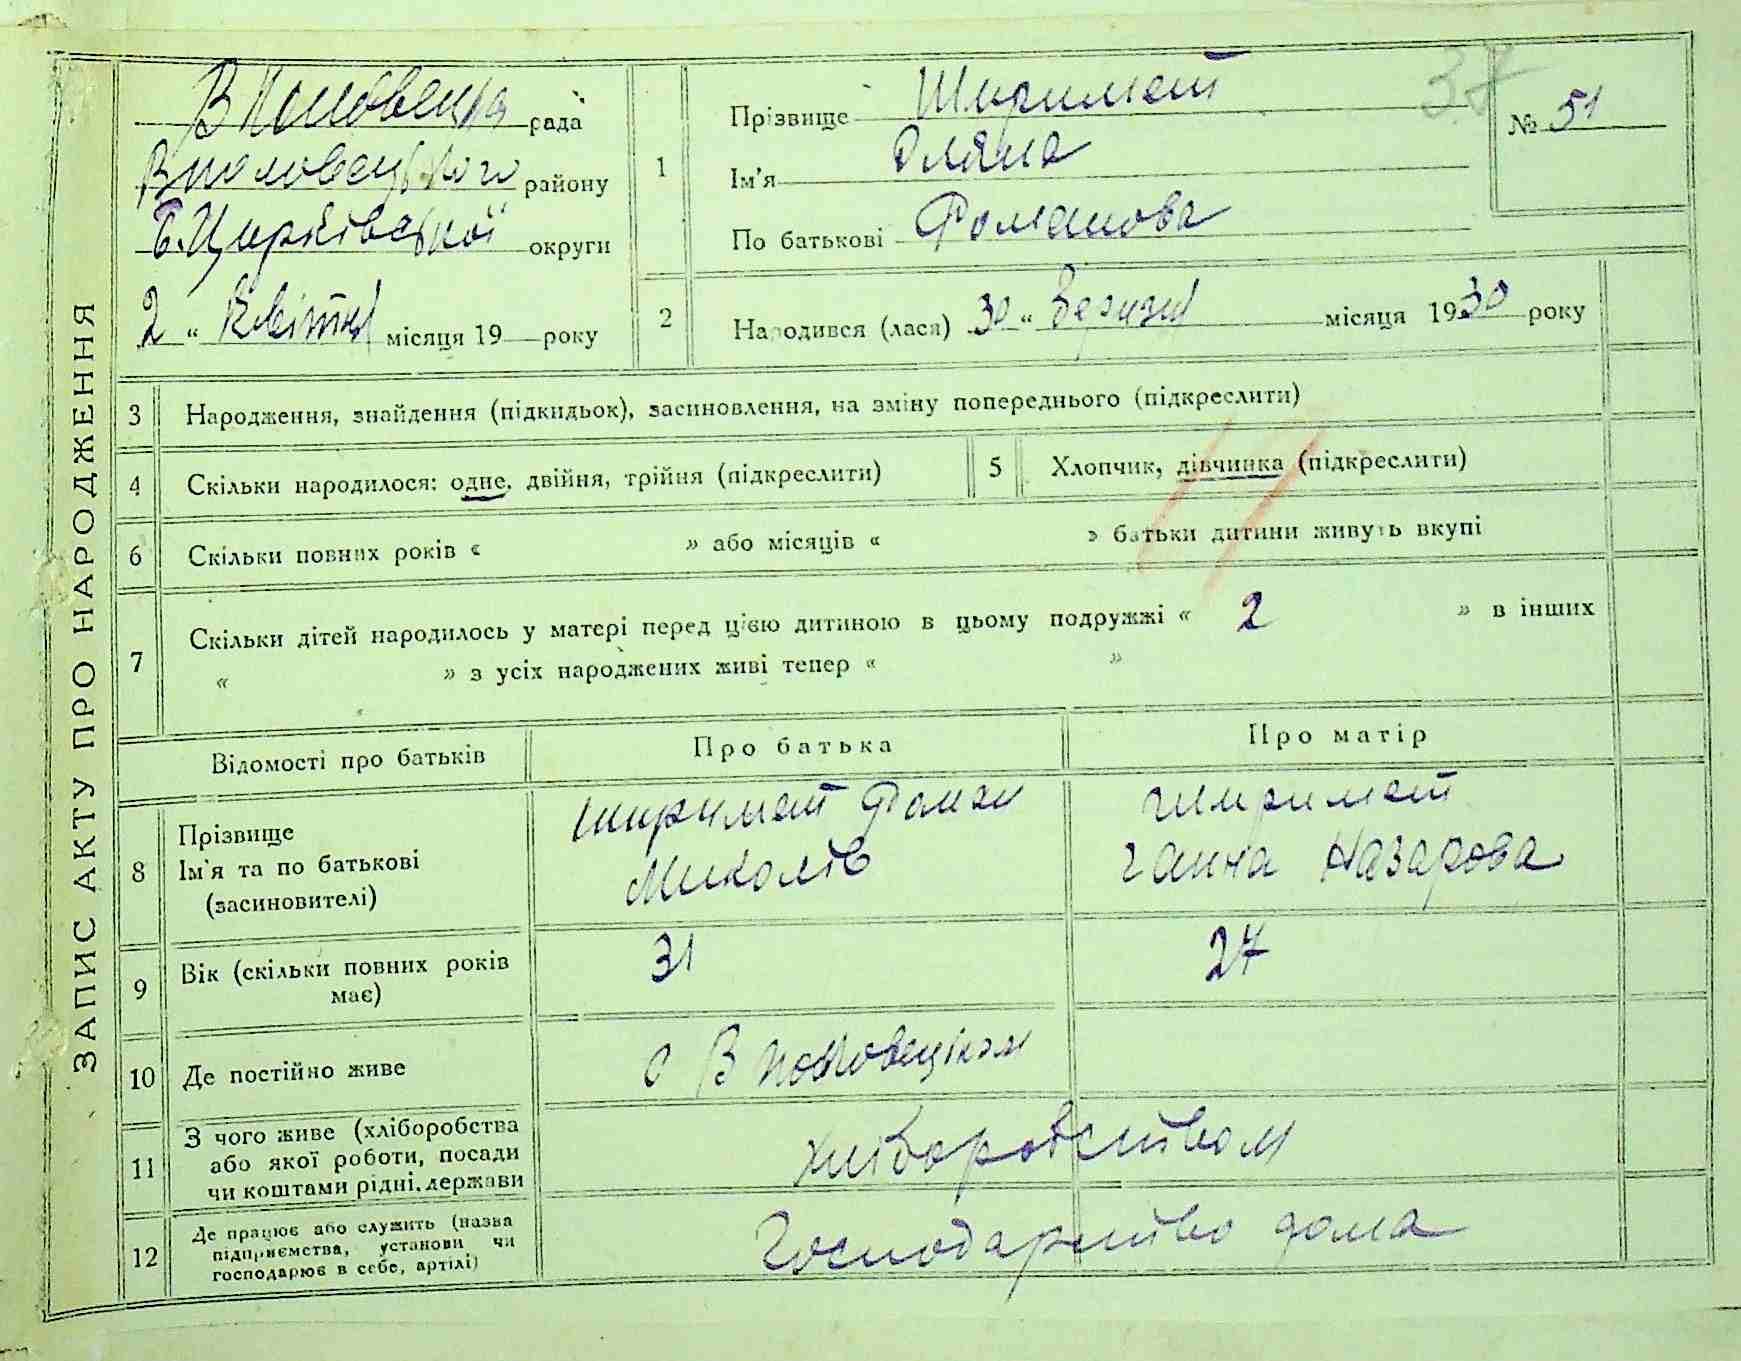 ЗАПИС АКТУ ПРО НАРОДЖЕННЯ
В Половецька рада
В половецького району
Б. Церківської округи
2 " Квітня місяця 19 року
37
№ 51
1
Прізвище Ширимет
Ім'я Оляна
По батькові Романова
2
Народився (лася) 30 " березня місяця 1930 року
3 Народження, знайдення (підкидьок), засиновлення, на зміну попереднього (підкреслити)
4 Скільки народилося: одне, двійня, трійня (підкреслити)
5 Хлопчик, дівчинка (підкреслити)
6 Скільки повних років « » або місяців « » батьки дитини живуть вкупі
7 Скільки дітей народилось у матері перед цією дитиною в цьому подружжі « 2 » в інших
« » з усіх народжених живі тепер « »
Відомості про батьків Про батька Про матір
8 Прізвище
Ім'я та по батькові
(засиновителі)
Ширимет Роман
Миколів
Ширимет
Ганна Назарова
9 Вік (скільки повних років
має)
31 27
10 Де постійно живе
с В Половецьком
11 З чого живе (хліборобства
або якої роботи, посади
чи коштами рідні, держави
хліборобством
12 Де працює або служить (назва
підприємства, установи чи
господарює в себе, артілі)
Господарство дома